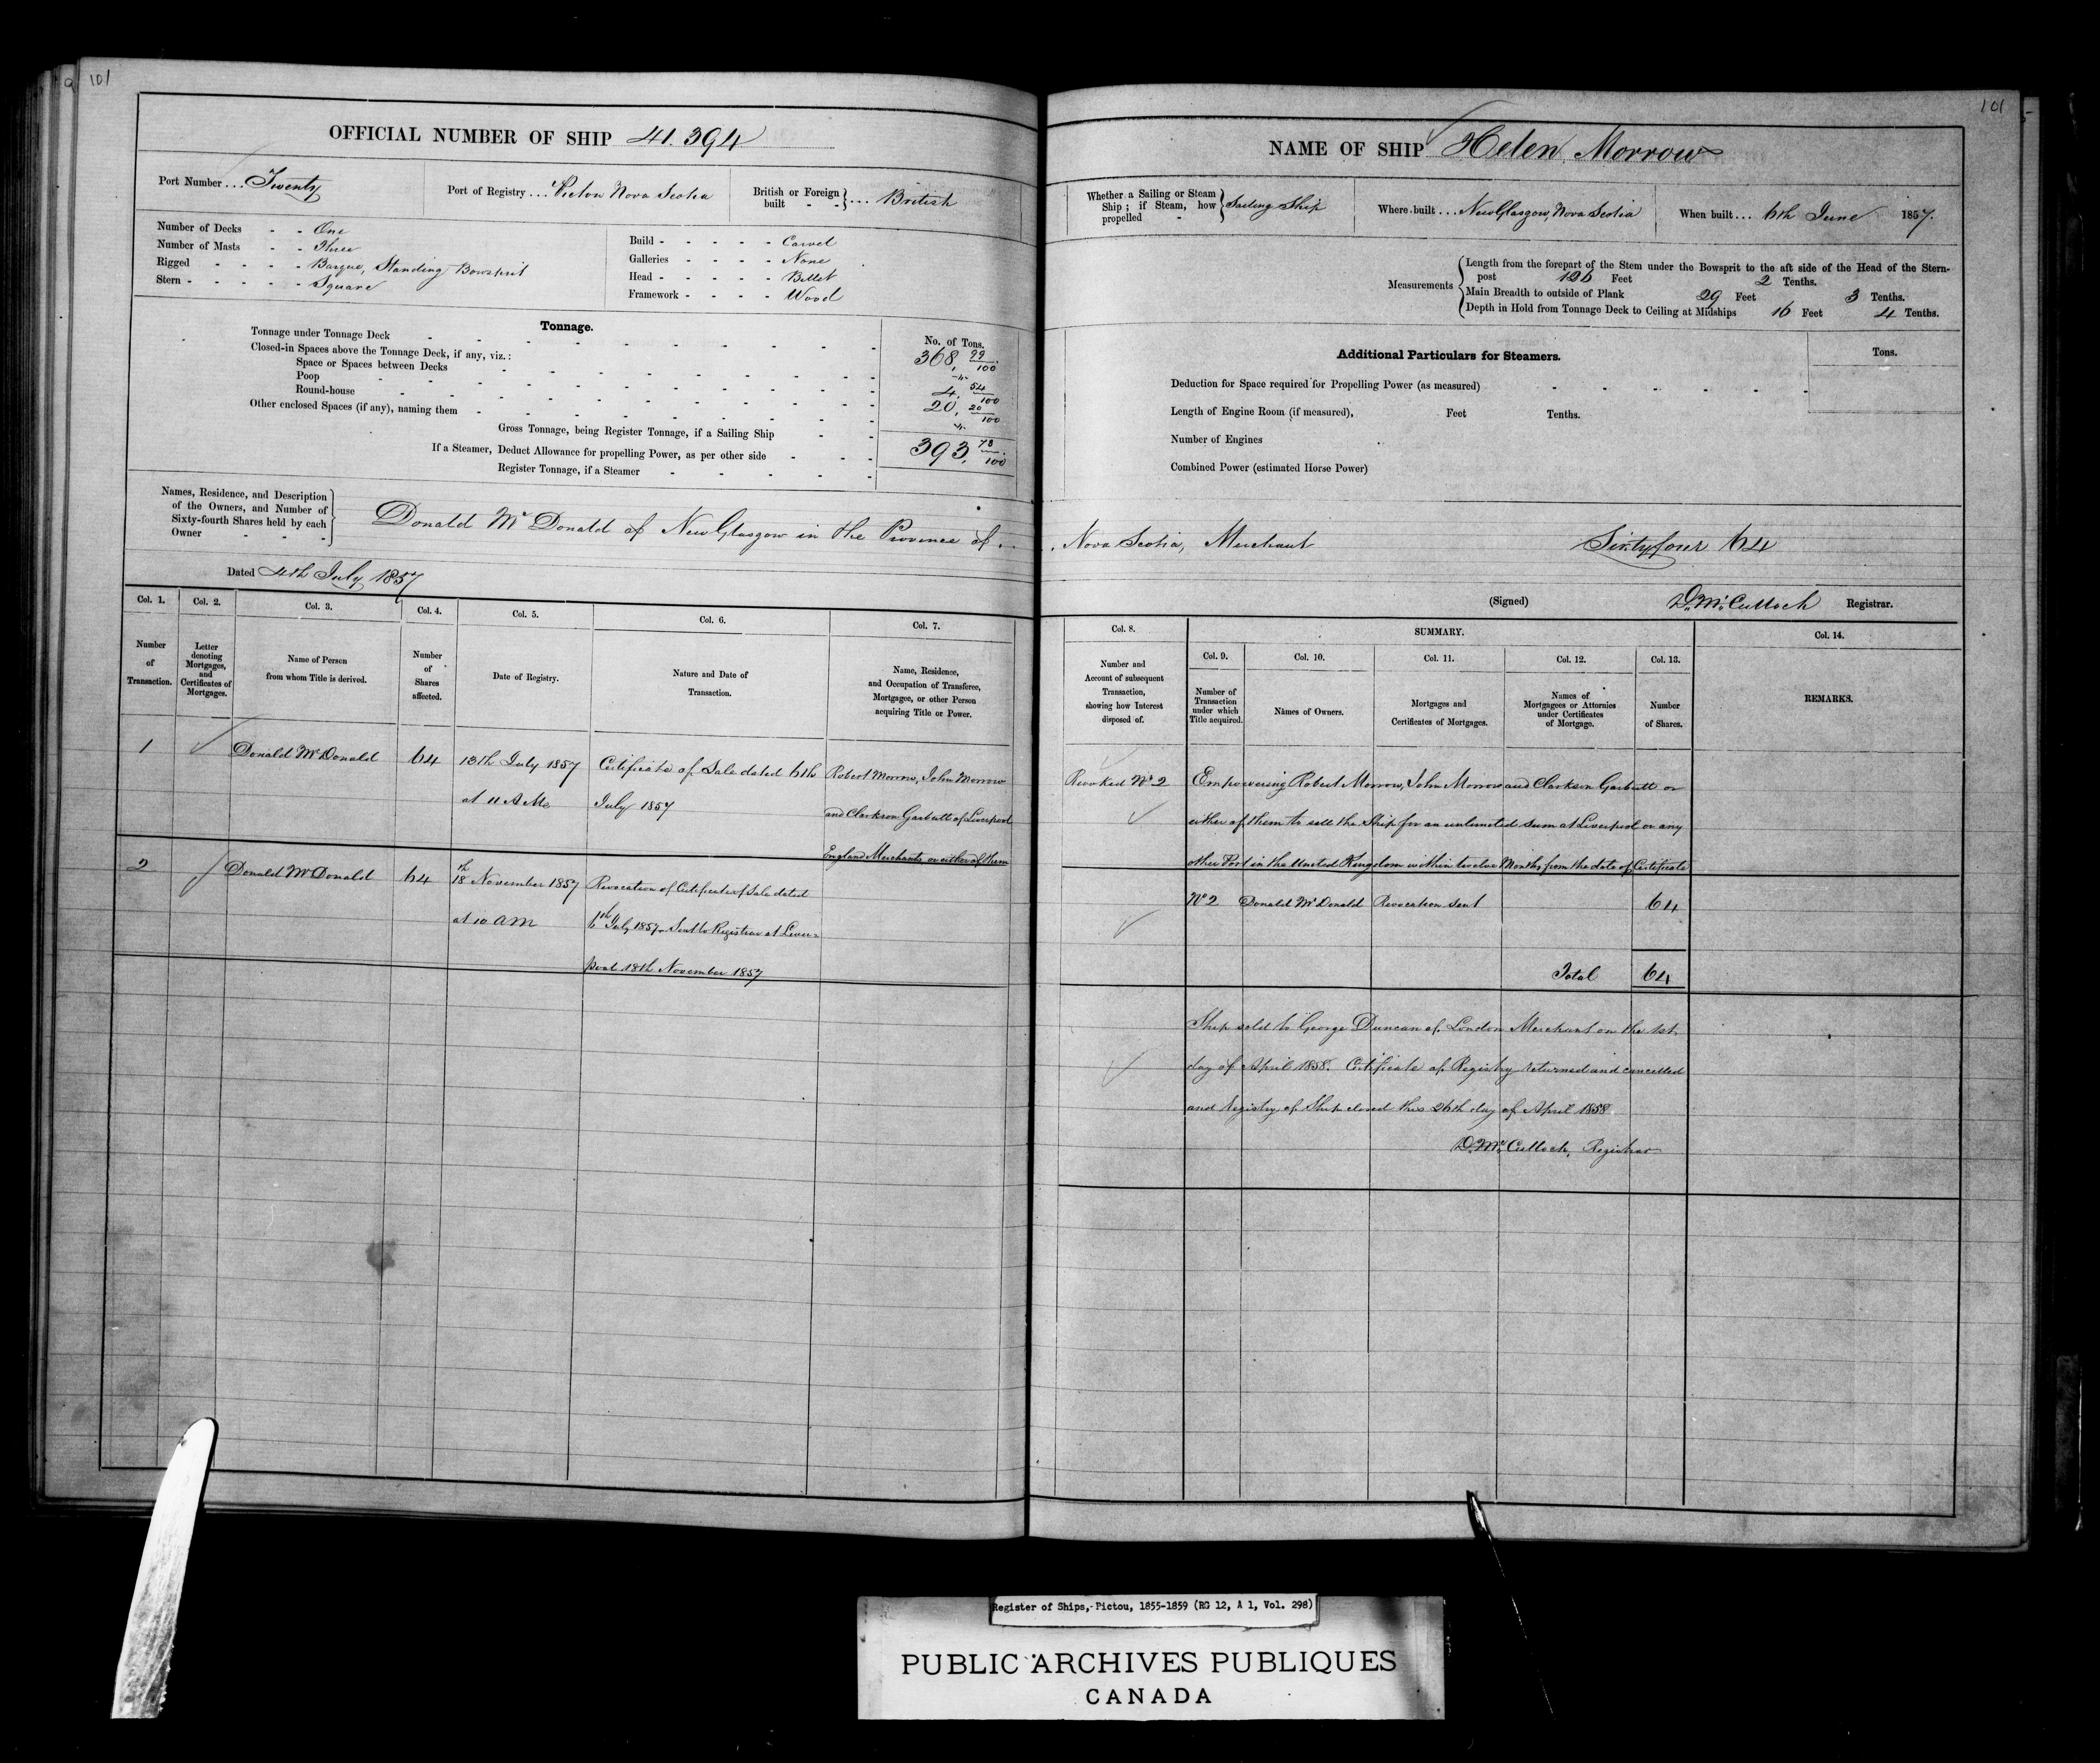 101
OFFICIAL NUMBER OF SHIP 41.394
Port Number ... Twenty
Port of Registry ... Pictou Nova Scotia
British or Foreign built - - } ... British
Number of Decks - - One
Number of Masts - - Three
Rigged - - - - Barque, Standing Bowsprit
Stern - - - - - Square
Build - - - - - Carvel
Galleries - - - - None
Head - - - - - Billet
Framework - - - - Wood
Tonnage.
No. of Tons.
Tonnage under Tonnage Deck 368, 99/100
Closed-in Spaces above the Tonnage Deck, if any, viz.:
Space or Spaces between Decks
Poop 4, 54/100
Round-house 20, 20/100
Other enclosed Spaces (if any), naming them
Gross Tonnage, being Register Tonnage, if a Sailing Ship 393, 73/100
If a Steamer, Deduct Allowance for propelling Power, as per other side
Register Tonnage, if a Steamer
Names, Residence, and Description
of the Owners, and Number of
Sixty-fourth Shares held by each
Owner
Donald McDonald of New Glasgow in the Province of ..
Dated 4th July 1857
Col. 1. Col. 2. Col. 3. Col. 4. Col. 5. Col. 6. Col. 7.
Number of Transaction.
Letter denoting Mortgages, and Certificates of Mortgages.
Name of Person from whom Title is derived.
Number of Shares affected.
Date of Registry.
Nature and Date of Transaction.
Name, Residence, and Occupation of Transferee, Mortgagee, or other Person acquiring Title or Power.
1 Donald McDonald 64 13th July 1857 Certificate of Sale dated 6th Robert Morrow, John Morrow
at 11 A M. July 1857 and Clarkson Garbutt of Liverpool
England Merchants or either of them
2 Donald McDonald 64 18th November 1857 Revocation of Certificate of Sale dated
at 10 AM 6th July 1857. Sent to Registrar at Liver-
pool 18th November 1857
101
NAME OF SHIP Helen Morrow
Whether a Sailing or Steam Ship; if Steam, how propelled - } Sailing Ship
Where built ... New Glasgow, Nova Scotia
When built ... 6th June 1857.
Measurements
Length from the forepart of the Stem under the Bowsprit to the aft side of the Head of the Stern-
post 126 Feet 2 Tenths.
Main Breadth to outside of Plank 29 Feet 3 Tenths.
Depth in Hold from Tonnage Deck to Ceiling at Midships 16 Feet 4 Tenths.
Additional Particulars for Steamers.
Tons.
Deduction for Space required for Propelling Power (as measured)
Length of Engine Room (if measured), Feet Tenths.
Number of Engines
Combined Power (estimated Horse Power)
. Nova Scotia, Merchant Sixtyfour 64
(Signed) D. McCulloch Registrar.
Col. 8. SUMMARY. Col. 14.
Col. 9. Col. 10. Col. 11. Col. 12. Col. 13.
Number and Account of subsequent Transaction, showing how Interest disposed of.
Number of Transaction under which Title acquired.
Names of Owners.
Mortgages and Certificates of Mortgages.
Names of Mortgagees or Attornies under Certificates of Mortgage.
Number of Shares.
REMARKS.
Revoked No 2 Empowering Robert Morrow, John Morrow and Clarkson Garbutt or
either of them to sell the Ship for an unlimited sum at Liverpool or any
other Port in the United Kingdom within twelve Months from the date of Certificate
No 2 Donald McDonald Revocation sent 64
Total 64
Ship sold to George Duncan of London Merchant on the 1st
day of April 1858. Certificate of Registry returned and cancelled
and Registry of Ship closed this 26th day of April 1858
D. McCulloch, Registrar
Register of Ships, Pictou, 1855-1859 (RG 12, A 1, Vol. 298)
PUBLIC ARCHIVES PUBLIQUES
CANADA